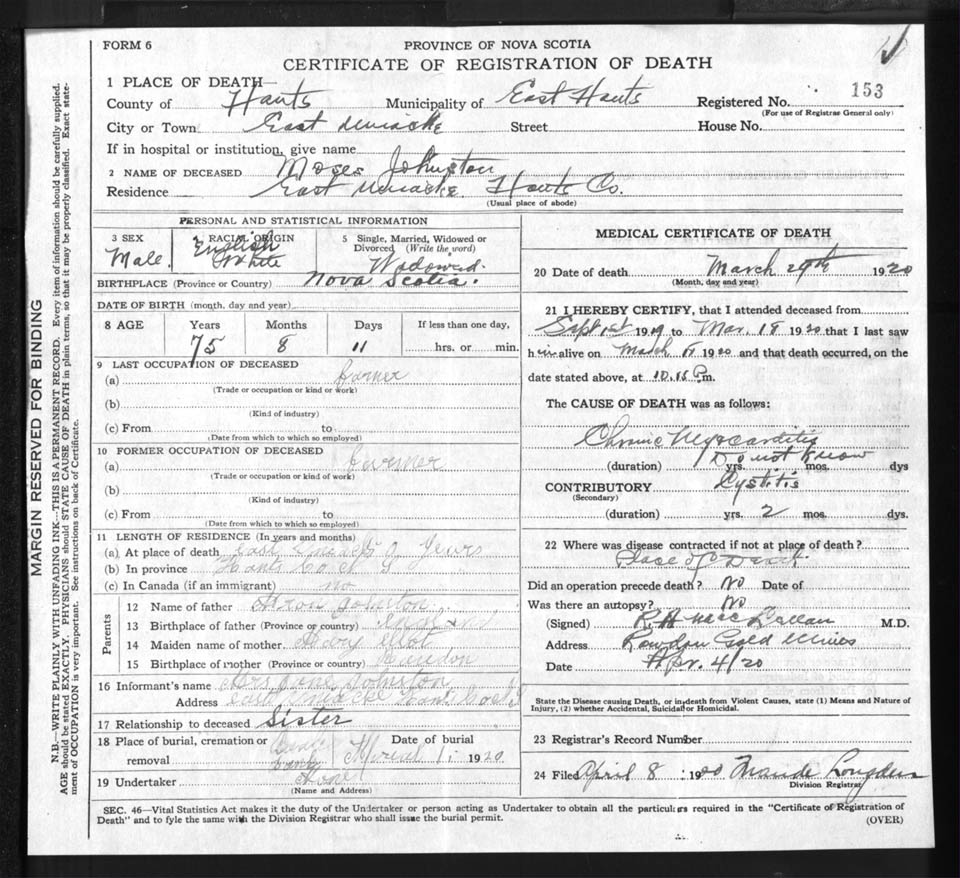 FORM 6
PROVINCE OF NOVA SCOTIA
CERTIFICATE OF REGISTRATION OF DEATH
1 PLACE OF DEATH
County of Hants Municipality of East Hants Registered No. 153
(For use of Registrar General only)
City or Town East Uniacke Street House No.
If in hospital or institution, give name
2 NAME OF DECEASED Moses Johnston
Residence East Uniacke Hants Co.
(Usual place of abode)
PERSONAL AND STATISTICAL INFORMATION
3 SEX Male.
4 RACIAL ORIGIN English White
5 Single, Married, Widowed or Divorced (Write the word) Widowed.
BIRTHPLACE (Province or Country) Nova Scotia.
DATE OF BIRTH (month, day and year)
8 AGE Years Months Days If less than one day,
75 8 11 hrs. or min.
9 LAST OCCUPATION OF DECEASED
(a) Farmer
(Trade or occupation or kind or work)
(b)
(Kind of industry)
(c) From to
(Date from which to which so employed)
10 FORMER OCCUPATION OF DECEASED
(a)
(Trade or occupation or kind or work)
(b)
(Kind of industry)
(c) From to
(Date from which to which so employed)
11 LENGTH OF RESIDENCE (In years and months)
(a) At place of death East Years
(b) In province Hants Co
(c) In Canada (if an immigrant) no
Parents
12 Name of father Johnston
13 Birthplace of father (Province or country) England
14 Maiden name of mother Mary
15 Birthplace of mother (Province or country)
16 Informant's name Mrs Jane Johnston
Address East Hants Co
17 Relationship to deceased Sister
18 Place of burial, cremation or removal
Date of burial 1 1920
19 Undertaker
(Name and Address)
MEDICAL CERTIFICATE OF DEATH
20 Date of death March 29th 1920
(Month, day and year)
21 I HEREBY CERTIFY, that I attended deceased from
Sept 1st 1919 to Mar. 18 1920 that I last saw
him alive on March 18 1920 and that death occurred, on the
date stated above, at 10.15 P.m.
The CAUSE OF DEATH was as follows:
Chronic Myocarditis
(duration) Do not know yrs. mos. dys
CONTRIBUTORY Cystitis
(Secondary)
(duration) yrs. 2 mos. dys.
22 Where was disease contracted if not at place of death?
Place of Death
Did an operation precede death? No Date of
Was there an autopsy? No
(Signed) R. H. MacLellan M.D.
Address Rawdon Gold Mines
Date Apr. 4/20
State the Disease causing Death, or in death from Violent Causes, state (1) Means and Nature of
Injury, (2) whether Accidental, Suicidal or Homicidal.
23 Registrar's Record Number
24 Filed April 8 1920 Maude
Division Registrar
SEC. 46—Vital Statistics Act makes it the duty of the Undertaker or person acting as Undertaker to obtain all the particulars required in the "Certificate of Registration of
Death" and to fyle the same with the Division Registrar who shall issue the burial permit.
(OVER)
MARGIN RESERVED FOR BINDING
N.B.—WRITE PLAINLY WITH UNFADING INK—THIS IS A PERMANENT RECORD. Every item of information should be carefully supplied.
AGE should be stated EXACTLY. PHYSICIANS should STATE CAUSE OF DEATH in plain terms, so that it may be properly classified. Exact state-
ment of OCCUPATION is very important. See instructions on back of Certificate.